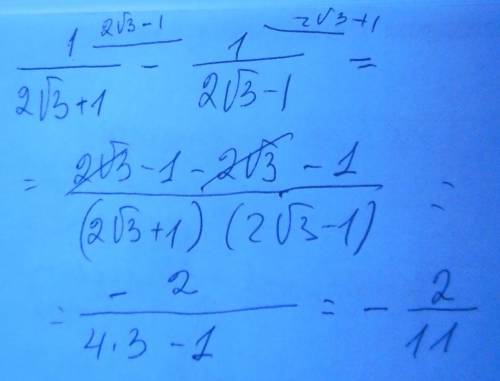 1 2√3-1 / 2√3+1 - 1 2√3+1 / 2√3-1 =
= 2√3 - 1 - 2√3 - 1 / (2√3+1) (2√3-1) =
= - 2 / 4·3 - 1 = - 2 / 11